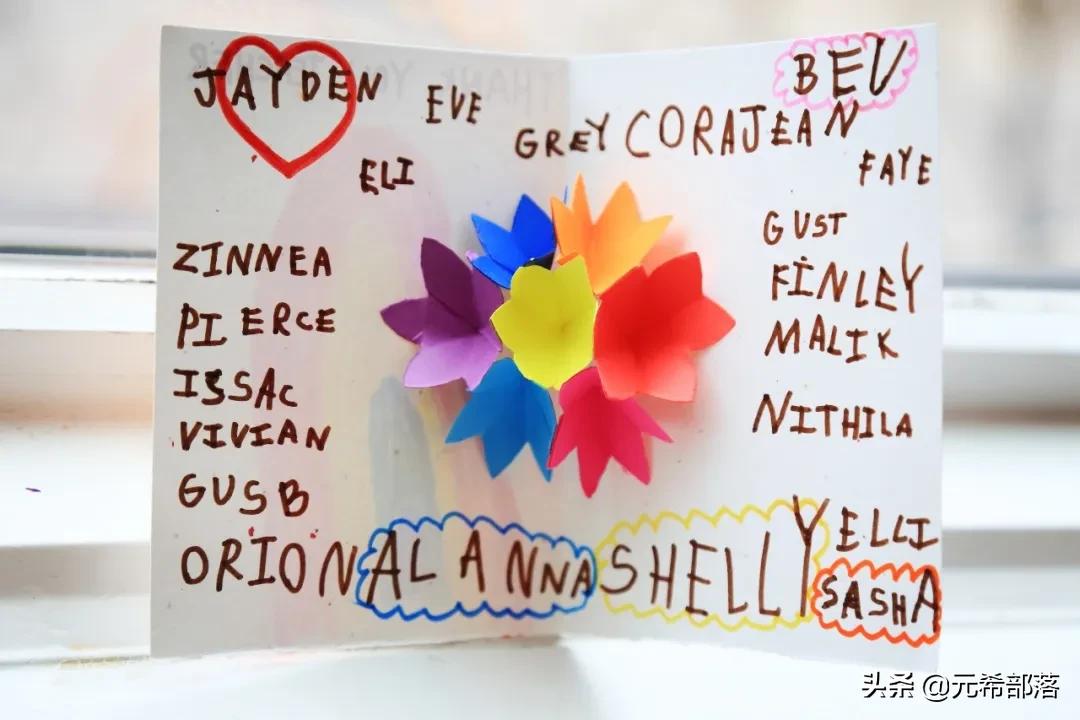 JAYDEN
EVE
BEV
GREY
CORAJEAN
ELI
FAYE
ZINNEA
PIERCE
ISSAC
VIVIAN
GUS B
ORION
ALANNA
GUS T
FINLEY
MALIK
NITHILA
YELLI
SHELLY
SASHA
THANK YOU
头条 @元希部落